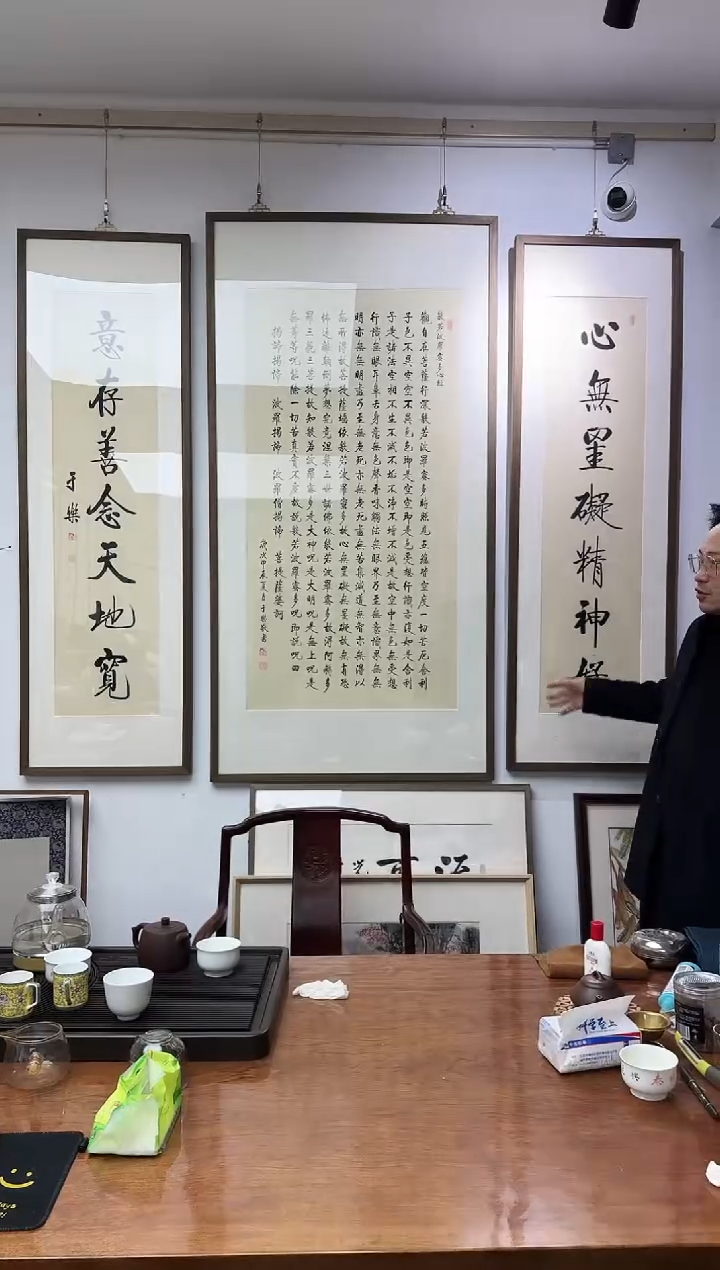 心無罣礙精神
般若波羅蜜多心經
觀自在菩薩行深般若波羅蜜多時照見五蘊皆空度一切苦厄舍利
子色不異空空不異色色即是空空即是色受想行識亦復如是舍利
子是諸法空相不生不滅不垢不淨不增不減是故空中無色無受想
行識無眼耳鼻舌身意無色聲香味觸法無眼界乃至無意識界無無
明亦無無明盡乃至無老死亦無老死盡無苦集滅道無智亦無得以
無所得故菩提薩埵依般若波羅蜜多故心無罣礙無罣礙故無有恐
怖遠離顛倒夢想究竟涅槃三世諸佛依般若波羅蜜多故得阿耨多
羅三藐三菩提故知般若波羅蜜多是大神呪是大明呪是無上呪是
無等等呪能除一切苦真實不虛故說般若波羅蜜多呪即說呪曰
揭諦揭諦 波羅揭諦 波羅僧揭諦 菩提薩婆訶
歲次甲辰夏月于樂敬書
意存善念天地寬
于樂